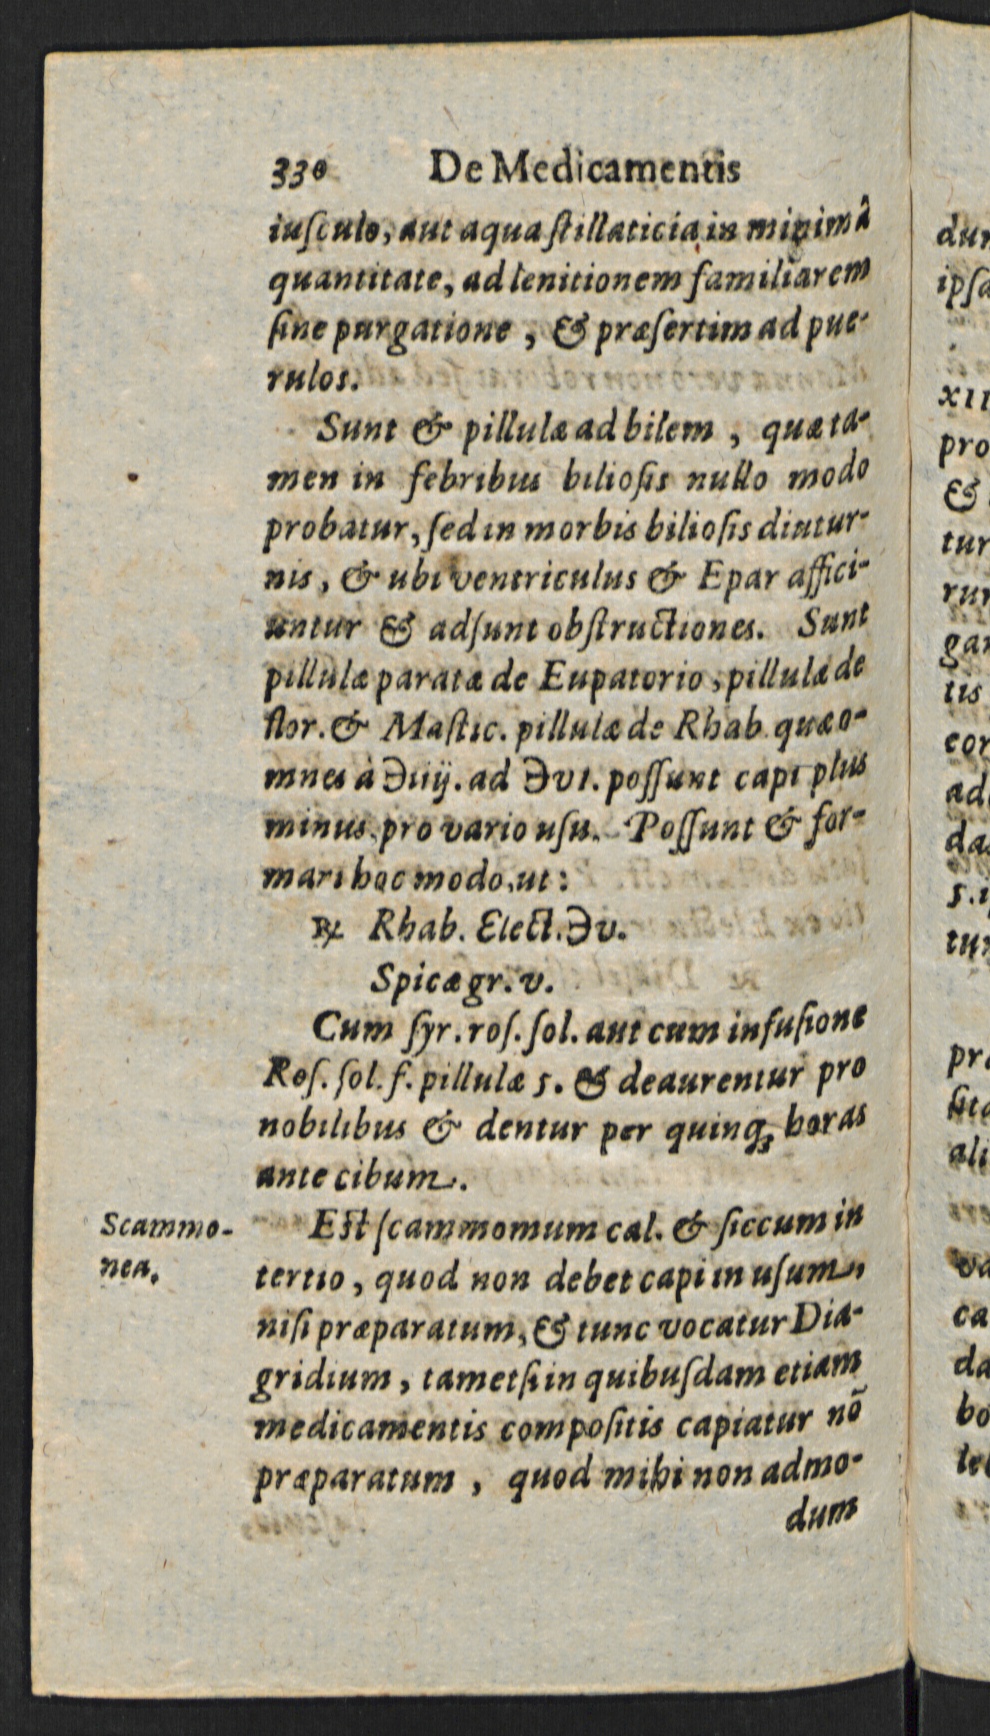 330 De Medicamentis
iuſculo, aut aqua ſtillaticia in minimâ
quantitate, ad lenitionem familiarem
ſine purgatione, & præſertim ad pue-
rulos.
Sunt & pillulæ ad bilem, quæ ta-
men in febribus bilioſis nullo modo
probatur, ſed in morbis bilioſis diutur-
nis, & ubi ventriculus & Epar affici-
untur & adſunt obſtructiones. Sunt
pillulæ paratæ de Eupatorio, pillulæ de
flor. & Maſtic. pillulæ de Rhab. quæ o-
mnes à ℈iiij. ad ℈vi. poſſunt capi plus
minus pro vario uſu. Poſſunt & for-
mari hoc modo, ut:
℞ Rhab. Elect. ℈v.
Spicæ gr. v.
Cum ſyr. roſ. ſol. aut cum infuſione
Roſ. ſol. f. pillulæ 5. & deaurentur pro
nobilibus & dentur per quinq; horas
ante cibum.
Scammo-
nea.
Eſt ſcammomum cal. & ſiccum in
tertio, quod non debet capi in uſum,
niſi præparatum, & tunc vocatur Dia-
gridium, tametſi in quibuſdam etiam
medicamentis compoſitis capiatur nō
præparatum, quod mihi non admo-
dum
dur
ipſa
XII
pro
&
tur
rur
gar
tis
cor
ada
das
5. i
tur
pra
ſita
ali
va
ca
da
bo
lel